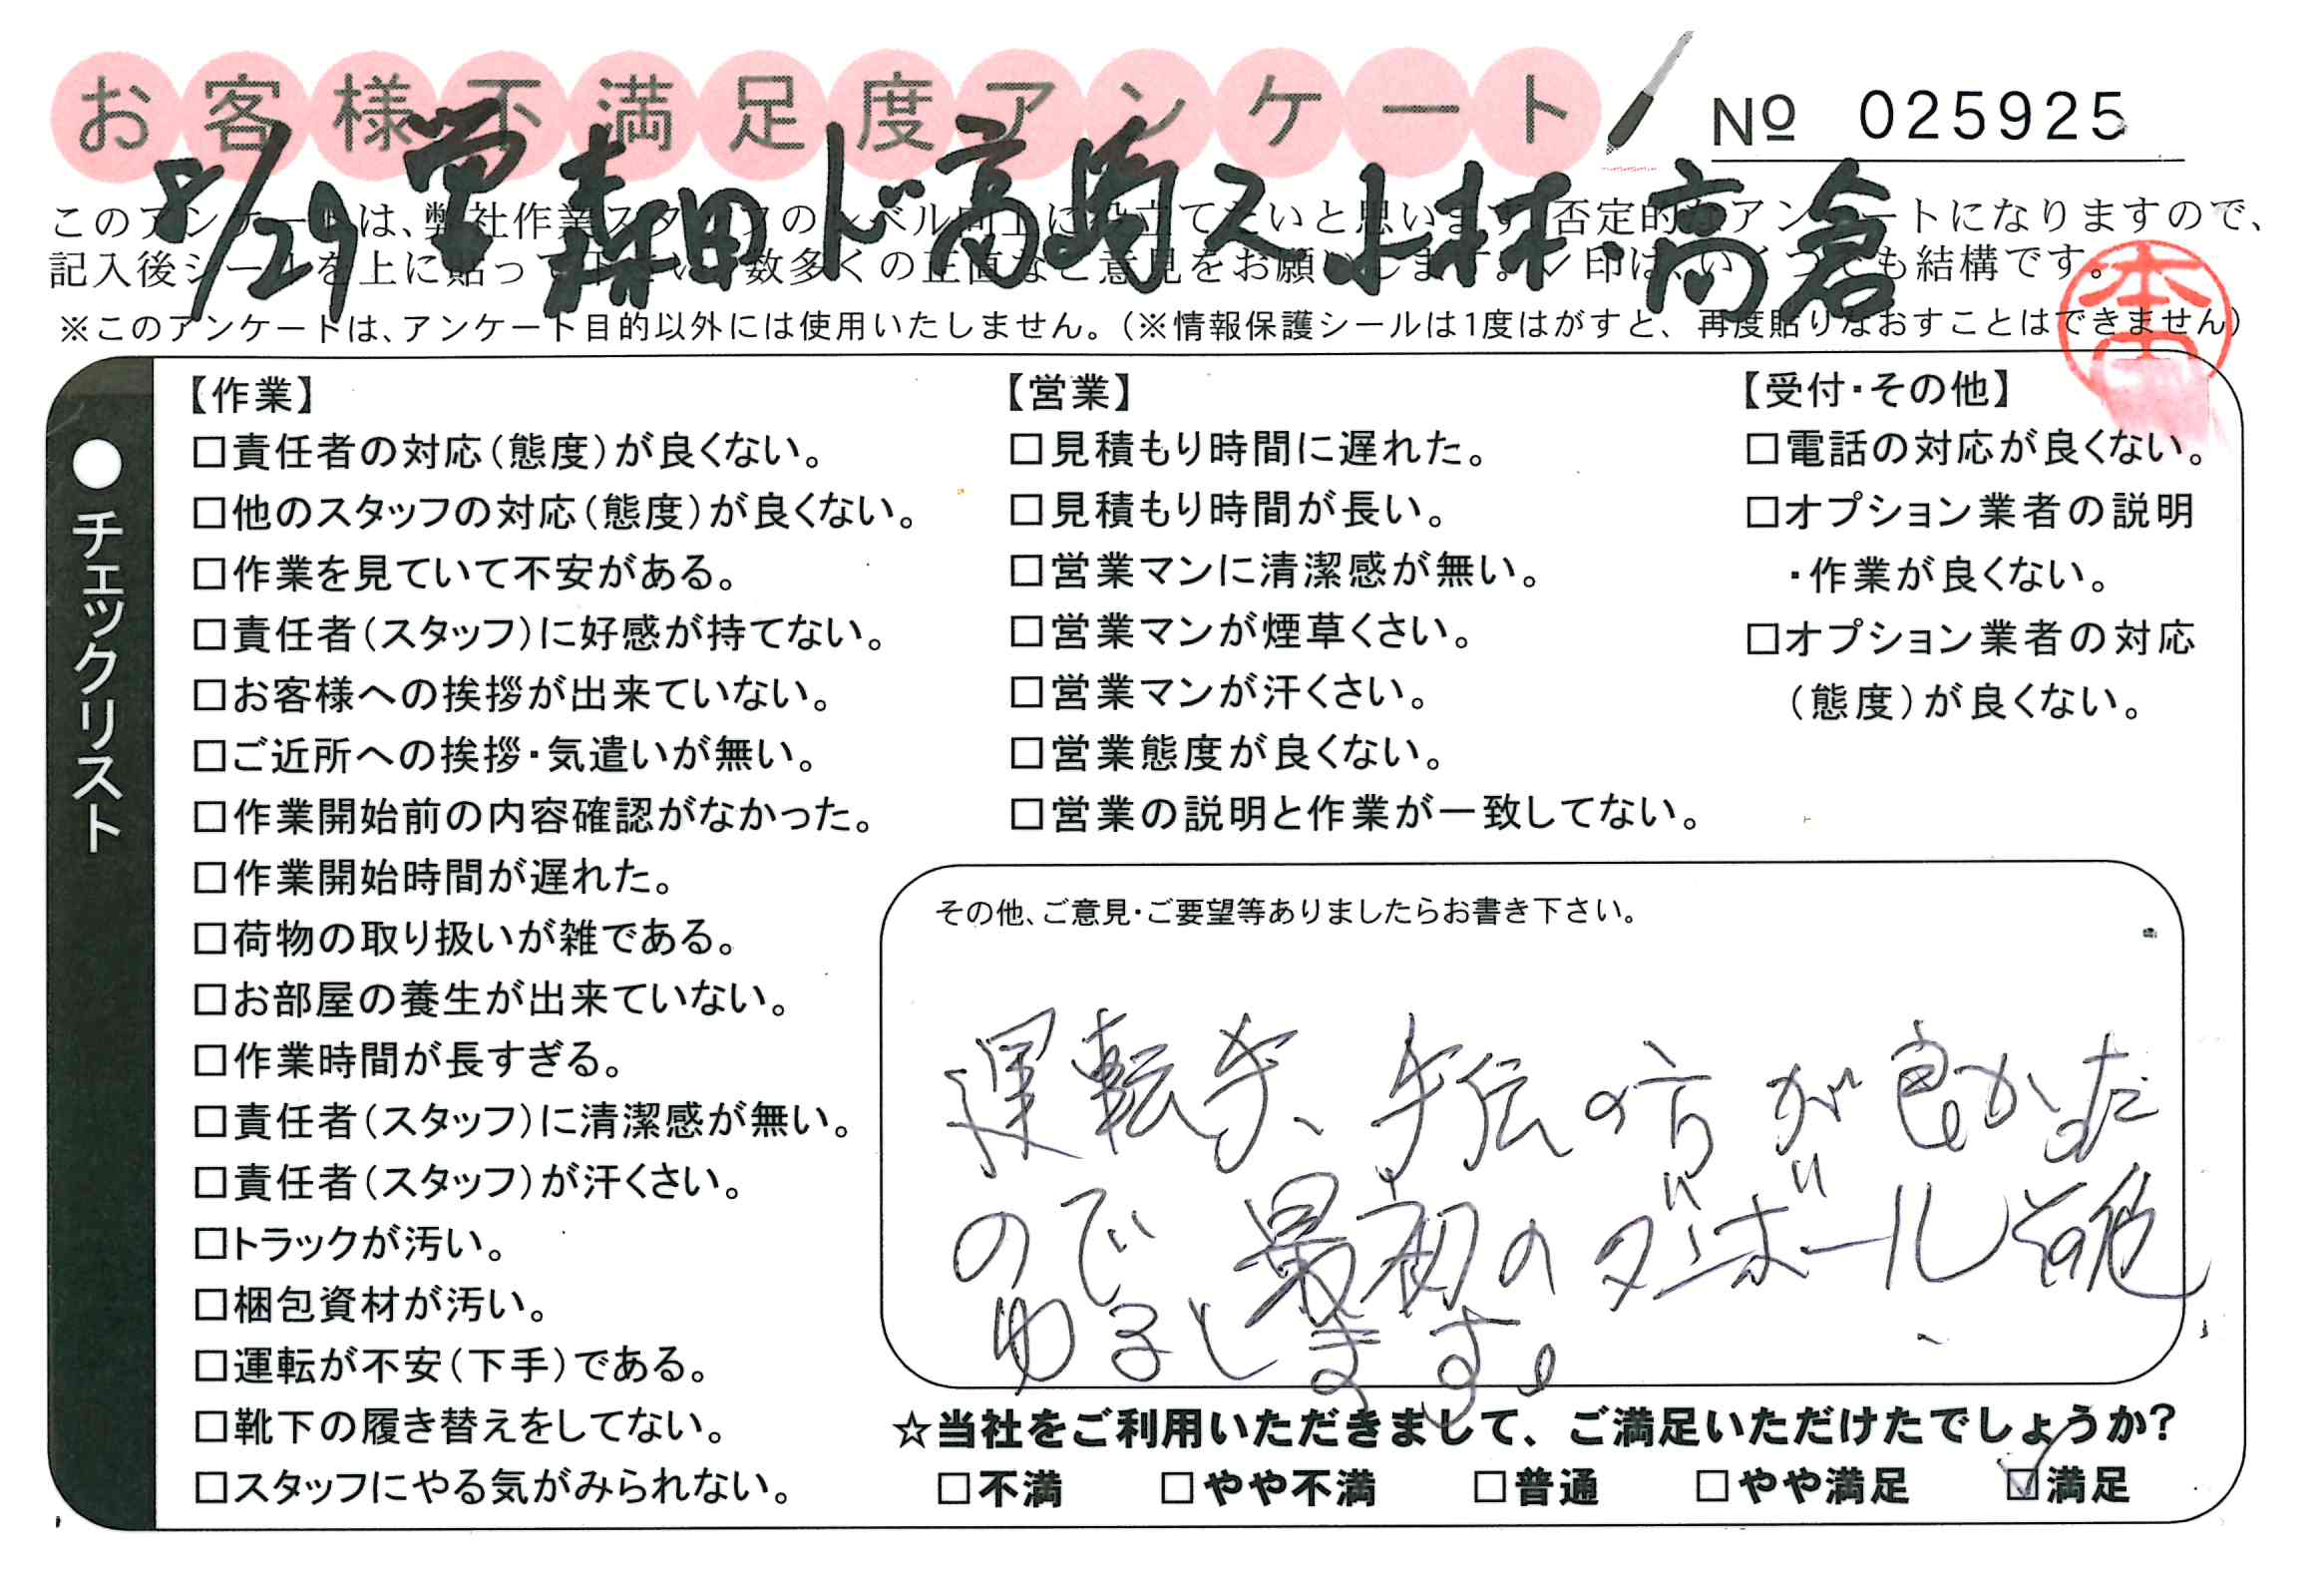 お客様不満足度アンケート
№ 025925
8/29 営 森田 ド高嶋 ス 小林・高倉
このアンケートは、弊社作業スタッフのレベル向上に役立てたいと思います。否定的なアンケートになりますので、
記入後シールを上に貼って下さい。数多くの正直なご意見をお願いします。✓印は、いくつでも結構です。
※このアンケートは、アンケート目的以外には使用いたしません。（※情報保護シールは1度はがすと、再度貼りなおすことはできません）
●チェックリスト
【作業】
□責任者の対応（態度）が良くない。
□他のスタッフの対応（態度）が良くない。
□作業を見ていて不安がある。
□責任者（スタッフ）に好感が持てない。
□お客様への挨拶が出来ていない。
□ご近所への挨拶・気遣いが無い。
□作業開始前の内容確認がなかった。
□作業開始時間が遅れた。
□荷物の取り扱いが雑である。
□お部屋の養生が出来ていない。
□作業時間が長すぎる。
□責任者（スタッフ）に清潔感が無い。
□責任者（スタッフ）が汗くさい。
□トラックが汚い。
□梱包資材が汚い。
□運転が不安（下手）である。
□靴下の履き替えをしてない。
□スタッフにやる気がみられない。
【営業】
□見積もり時間に遅れた。
□見積もり時間が長い。
□営業マンに清潔感が無い。
□営業マンが煙草くさい。
□営業マンが汗くさい。
□営業態度が良くない。
□営業の説明と作業が一致してない。
【受付・その他】
□電話の対応が良くない。
□オプション業者の説明
・作業が良くない。
□オプション業者の対応
（態度）が良くない。
その他、ご意見・ご要望等ありましたらお書き下さい。
運転手、手伝の方が良かった
ので最初のダンボールその他
ゆるします。
☆当社をご利用いただきまして、ご満足いただけたでしょうか?
□不満 □やや不満 □普通 □やや満足 ☑満足